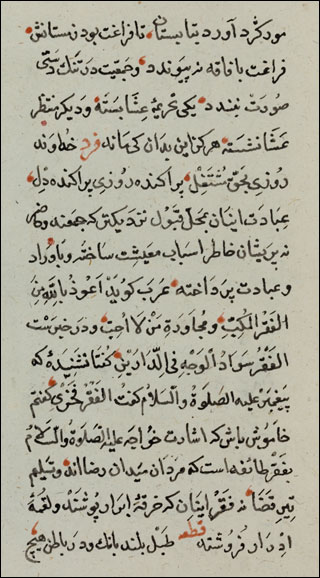 مور گرد آورد بتابستان تا فراغت بود زمستانش
فراغت با فاقه نپیوندد و جمعیت در تنک دستی
صورت نبندد یکی تحریمهٔ عشا بسته و دیگر منتظر
عشا نشسته هرکز این بدان کی ماند فرد خداوند
روزی بحق مشتغل پراکنده روزی پراکنده دل
عبادت اینان بمحل قبول نزدیکتر که جمعند و حاضر
نه پریشان خاطر اسباب معیشت ساخته و باوراد
و عبادت پرداخته عرب کوید اَعُوذُ بِاللهِ مِنَ
الفَقْرِ المُکِبِّ وَمُجاوَرَةِ مَنْ لا اُحِبُّ و در خبرست
الفَقْرُ سَوادُ الوَجْهِ فِی الدّارَیْنِ کفتا نشنیدهٔ که
پیغمبر علیه الصلوة والسلام کفت الفَقْرُ فَخْری کفتم
خاموش باش که اشارت خواجه علیه الصلوة والسلام
بفقر طائفه است که مردان میدان رضا اند و تسلیم
تیر قضا نه فقر اینان که خرقهٔ ابرار پوشند و لقمهٔ
ادرار فروشند قطعه طبل بلند بانک و در باطن هیچ